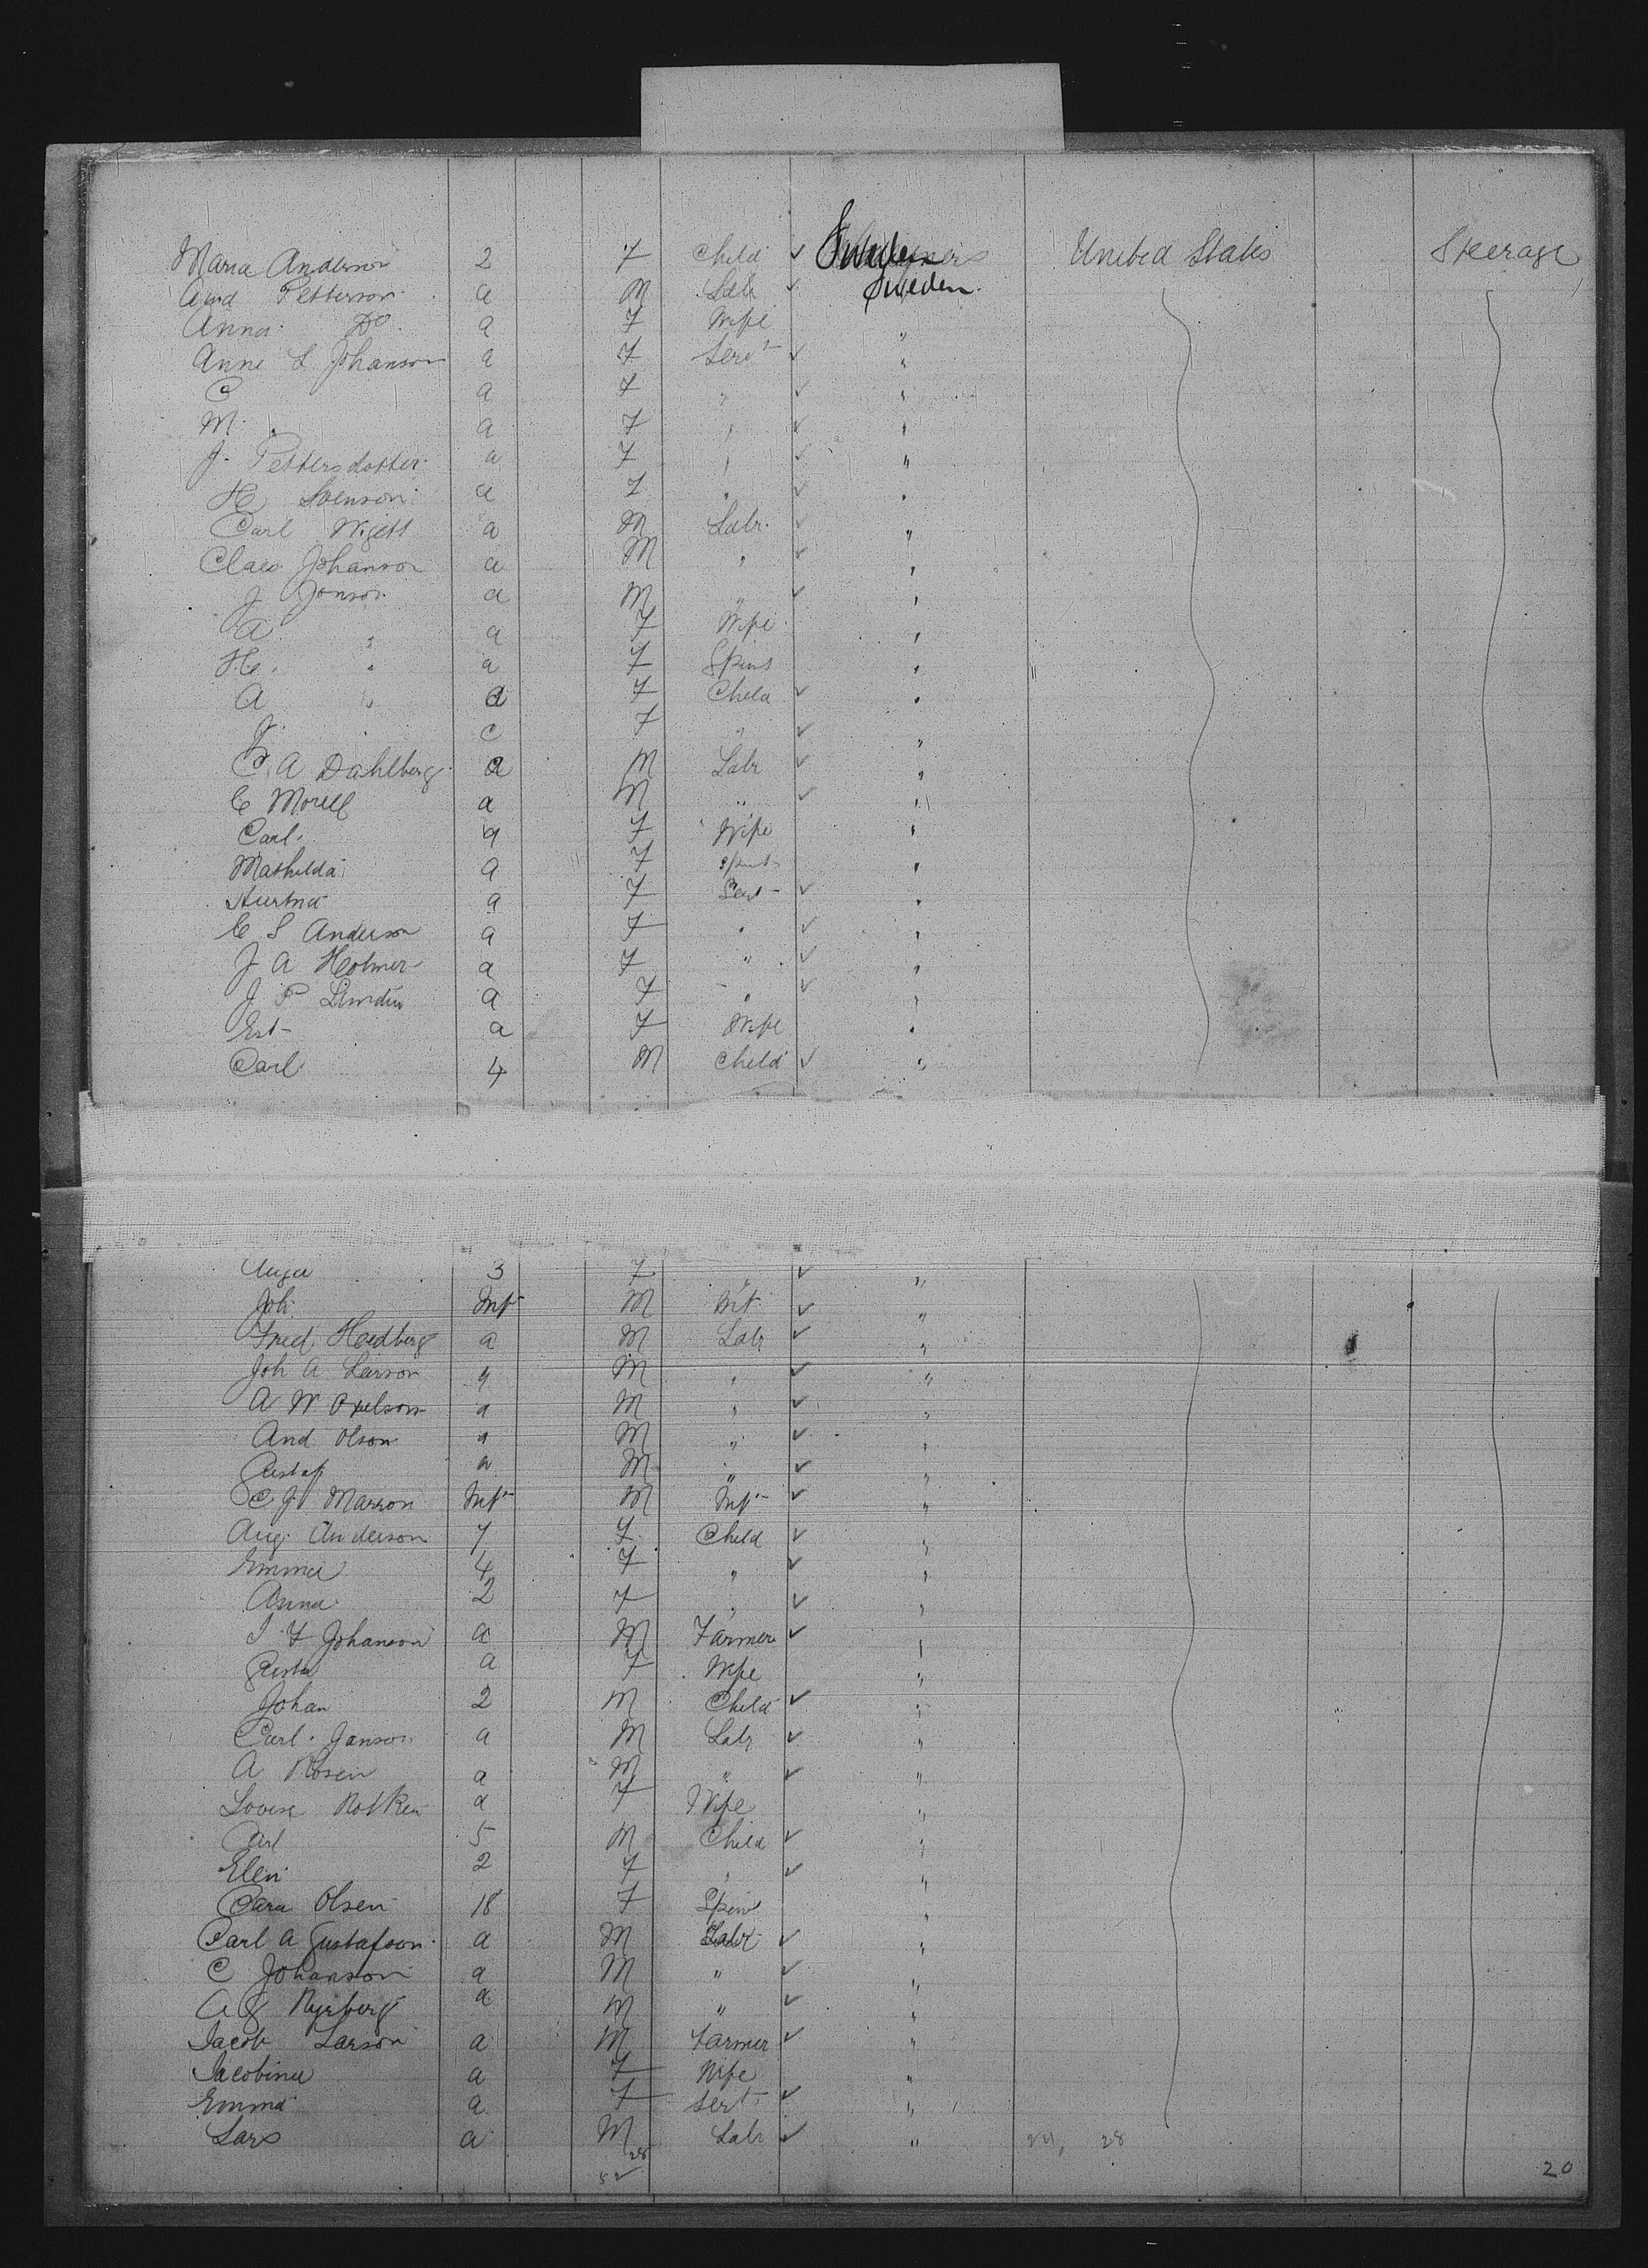 Maria Anderson 2 F Child ✓ Sweden United States Steerage
And Petterson a M Labr ✓ Sweden
Anna Do a F Wife "
Anna L Johanson a F Servt ✓ "
C a F " ✓ "
M a F " ✓ "
J. Pettersdotter a F " ✓ "
H Svenson a F " ✓ "
Carl a M Labr ✓ "
Claes Johanson a M " ✓ "
J Jonson a M " ✓ "
A " a F Wife "
H. " a F Spins "
A " a F Child ✓ "
J. " c F " ✓ "
C. A Dahlberg a M Labr ✓ "
C Morell a M " ✓ "
Carl. a F Wife "
Mathilda a F Spinst "
a F Servt ✓ "
C S Anderson a F " ✓ "
J A Holmer a F " ✓ "
J P a F " ✓ "
Est a F Wife "
Carl 4 M Child ✓ "
3 F " ✓ "
Joh Inft M Inft ✓ "
Fred. Hedberg a M Labr ✓ "
Joh A Larson a M " ✓ "
A W Axelson a M " ✓ "
And Olson a M " ✓ "
Gustaf a M " ✓ "
C J Marson Inft M Inft ✓ "
Aug Anderson 7 F Child ✓ "
Emma 4 F " ✓ "
Anna 2 F " ✓ "
J F Johanson a M Farmer ✓ "
a F Wife "
Johan 2 M Child ✓ "
Carl. Janson a M Labr ✓ "
A Rosen a M " ✓ "
Lovise a F Wife "
Carl 5 M Child ✓ "
Elen 2 F " ✓ "
Clara Olsen 18 F Spins "
Carl A Gustafson a M Labr ✓ "
C Johanson a M " ✓ "
A G a M " ✓ "
Jacob Larson a M Farmer ✓ "
Jacobina a F Wife "
Emma a F Servt ✓ "
Lars a M Labr ✓ " 24, 28
28
52
20